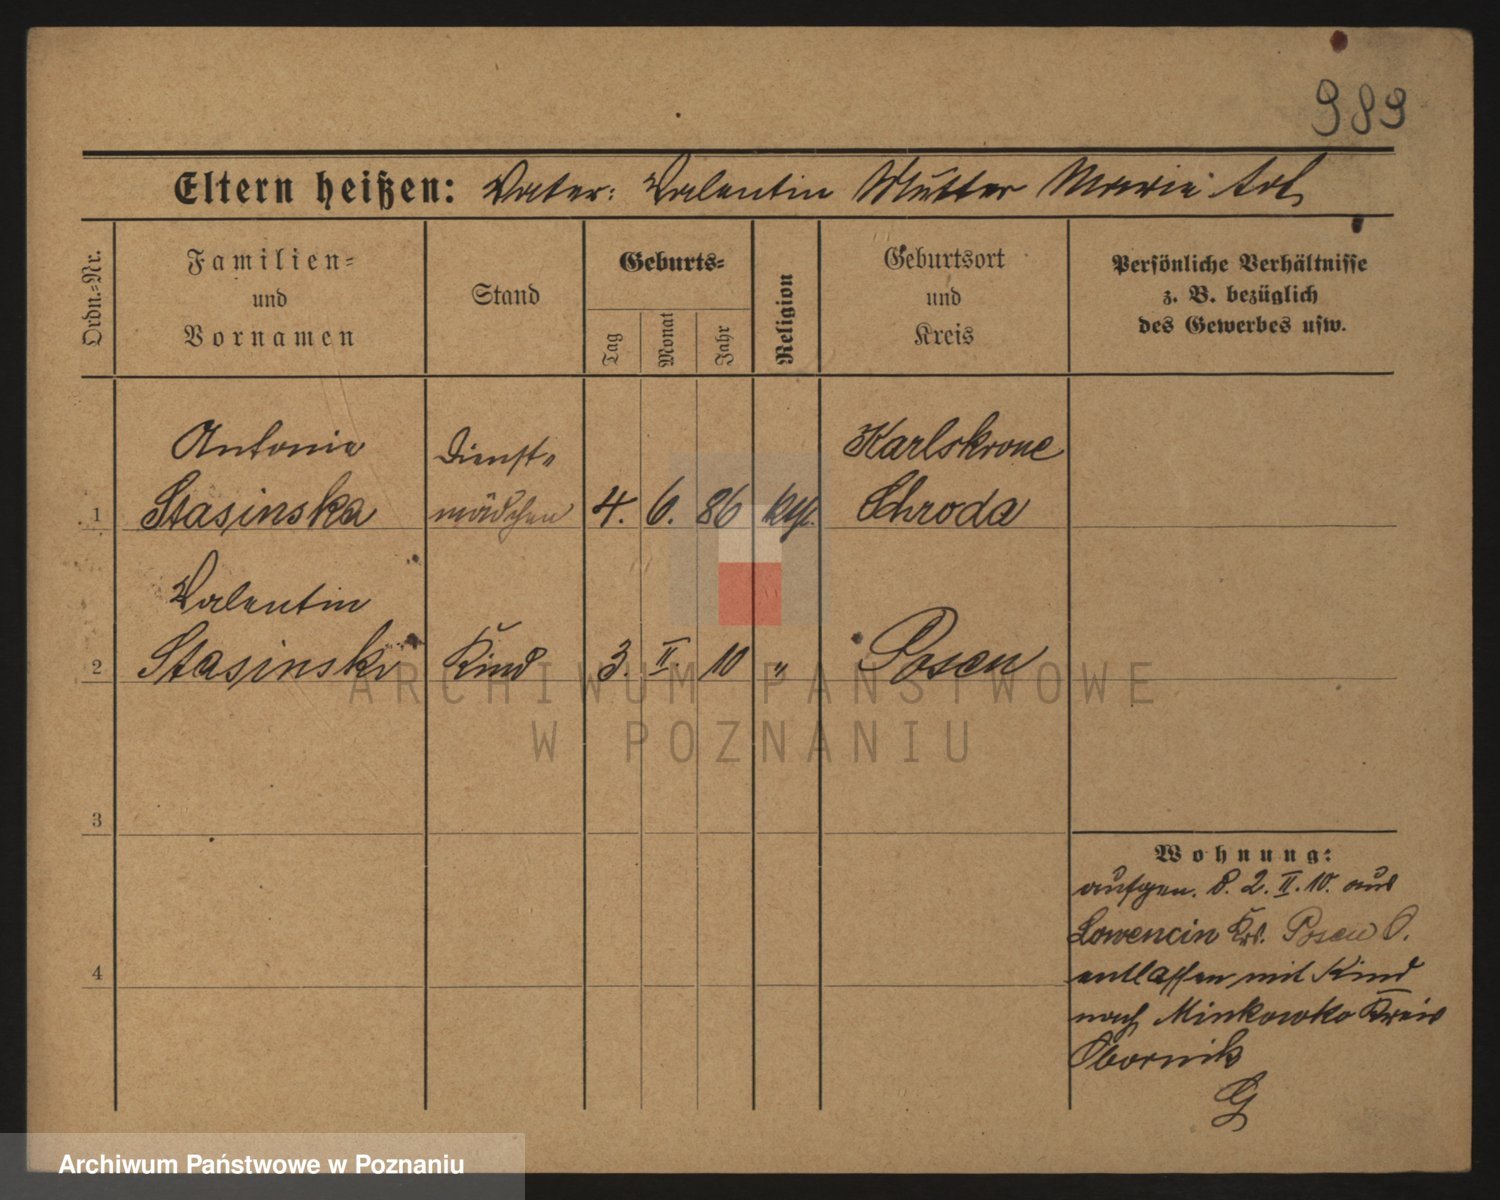 989
Eltern heißen: Vater: Valentin Mutter Marie
Ordn.-Nr.
Familien-
und
Vornamen
Stand
Geburts-
Tag
Monat
Jahr
Religion
Geburtsort
und
Kreis
Persönliche Verhältnisse
z. B. bezüglich
des Gewerbes usw.
Antonie Dienst- Karlskrone
1 Stasinska mädchen 4. 6. 86 Schroda
Valentin
2 Stasinski Kind 3. II. 10 " Posen
3
4
Wohnung:
aufgen. d. 2. II. 10. aus
Lowencin Krs. Posen O.
entlassen mit Kind
nach Minkowko Kreis
Obornik
G
ARCHIWUM PAŃSTWOWE
W POZNANIU
Archiwum Państwowe w Poznaniu